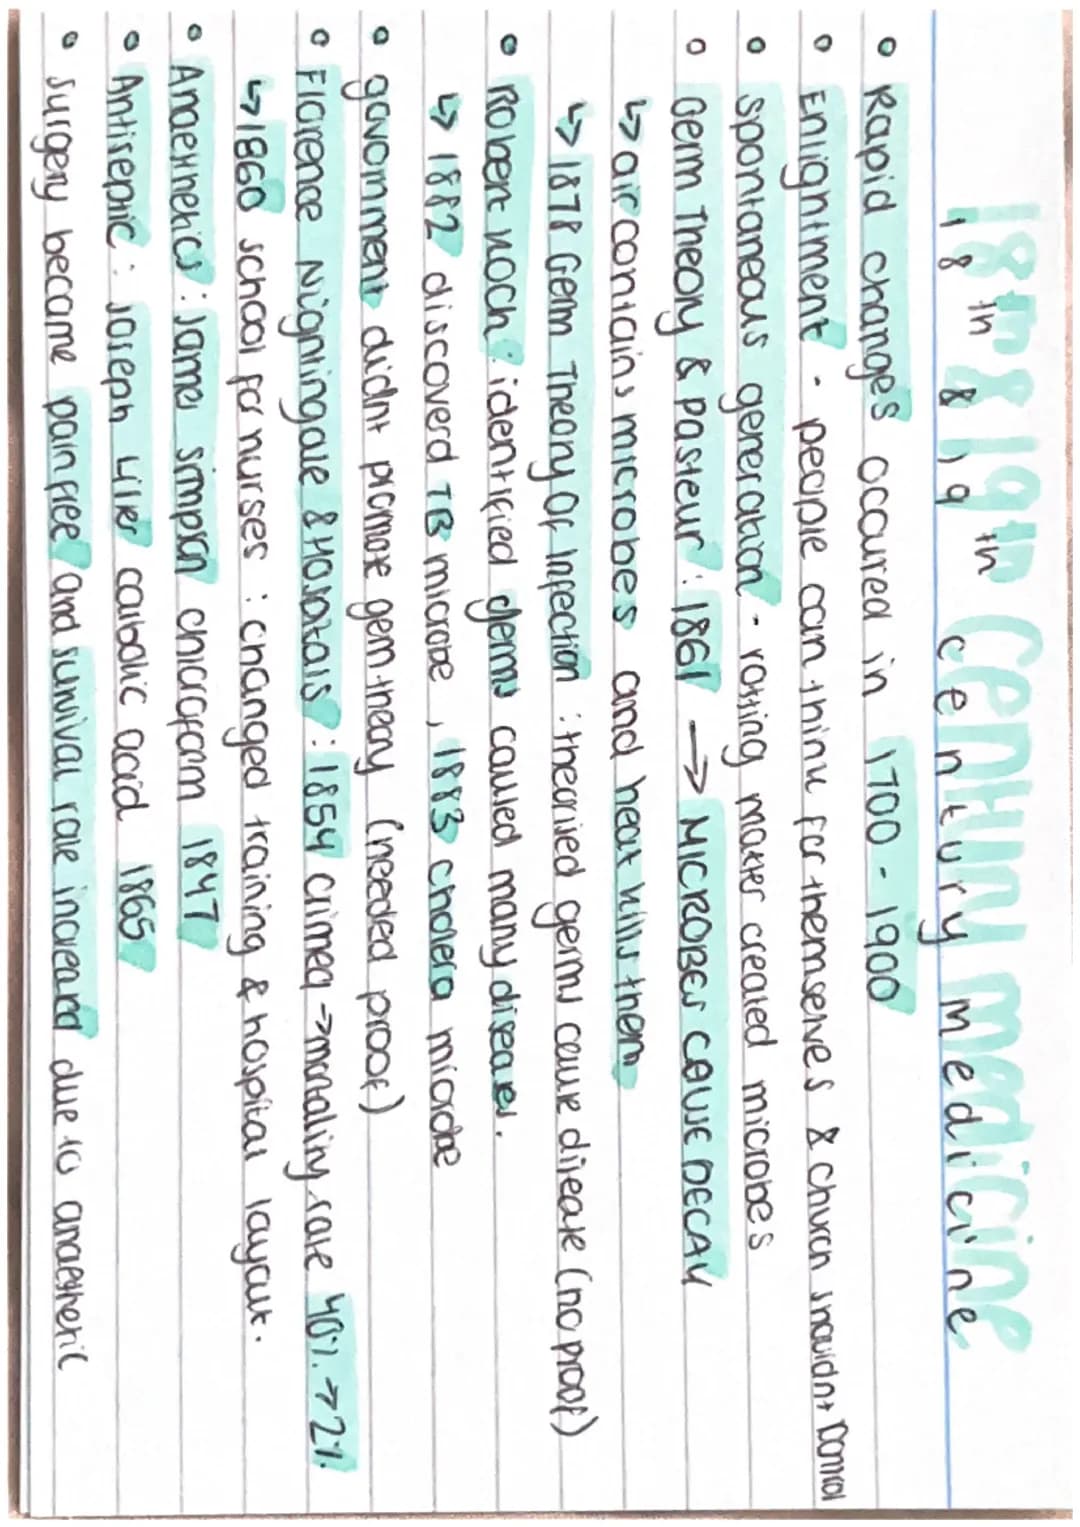 18th & 19th Century medicine
18th & 19th century medicine
• Rapid changes occured in 1700 - 1900
• Enlightnment - people can think for themselves & church shouldn't control
• Spontaneous generation - rotting matter created microbes
• Germ Theory & Pasteur : 1861 → MICROBES CAUSE DECAY
↳ air contains microbes and heat kills them
↳ 1878 Germ Theory Of Infection : theorised germs cause disease (no proof)
• Robert Koch : identified germs caused many diseases.
↳ 1882 discoverd TB microbe , 1883 cholera microbe
• government didnt promote germ theory (needed proof)
• Florence Nightingale & Hospitals : 1854 crimea → mortality rate 40% → 2%
↳ 1860 school for nurses : changed training & hospital layout .
• Anaethetics : James simpson chloroform 1847
• Antiseptic : Joseph Lister carbolic acid 1865
• Surgery became pain free and survival rate increased due to anaethetic